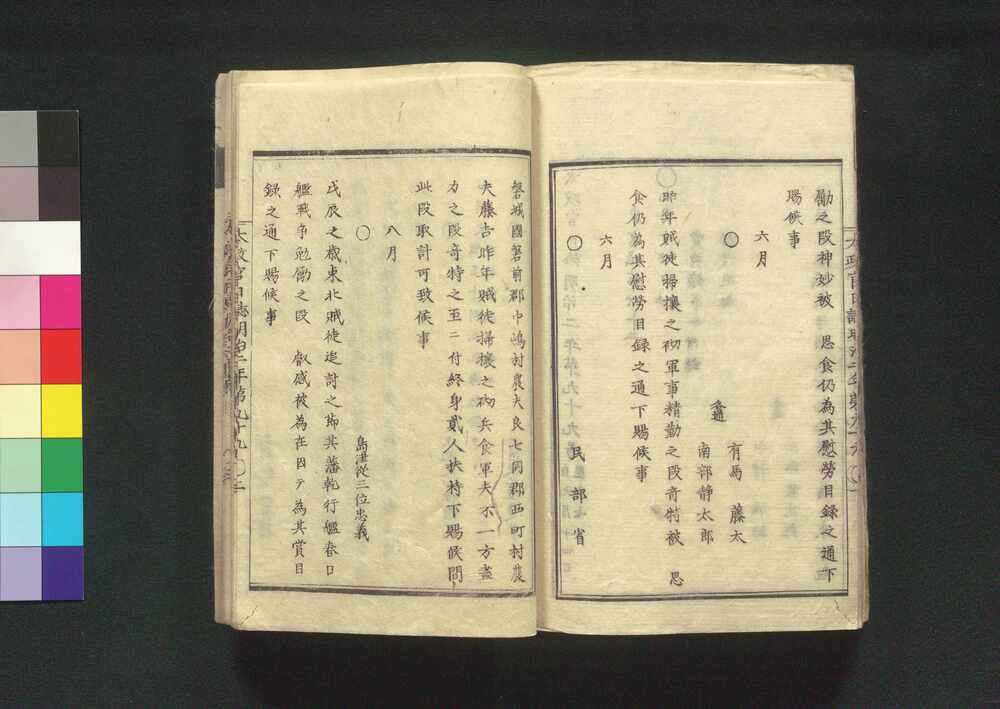 勵之段神妙被　思食仍為其慰勞目録之通下
賜候事
六月
〇
有馬　藤太
南部静太郎
昨年賊徒掃攘之砌軍事精勤之段奇特被　思
食仍為其慰勞目録之通下賜候事
六月
〇　民部省
磐城國磐前郡中嶋村農夫良七同郡西町村農
夫藤吉昨年賊徒掃攘之砌兵食軍夫不一方盡
力之段奇特之至ニ付終身貳人扶持下賜候間
此段取計可致候事
八月
〇
島津從三位忠義
戊辰之歳東北賊徒追討之節其藩乾行艦春日
艦戦争勉勵之段　叡感被為在因テ為其賞目
録之通下賜候事
太政官日誌明治二年第九十九〇二